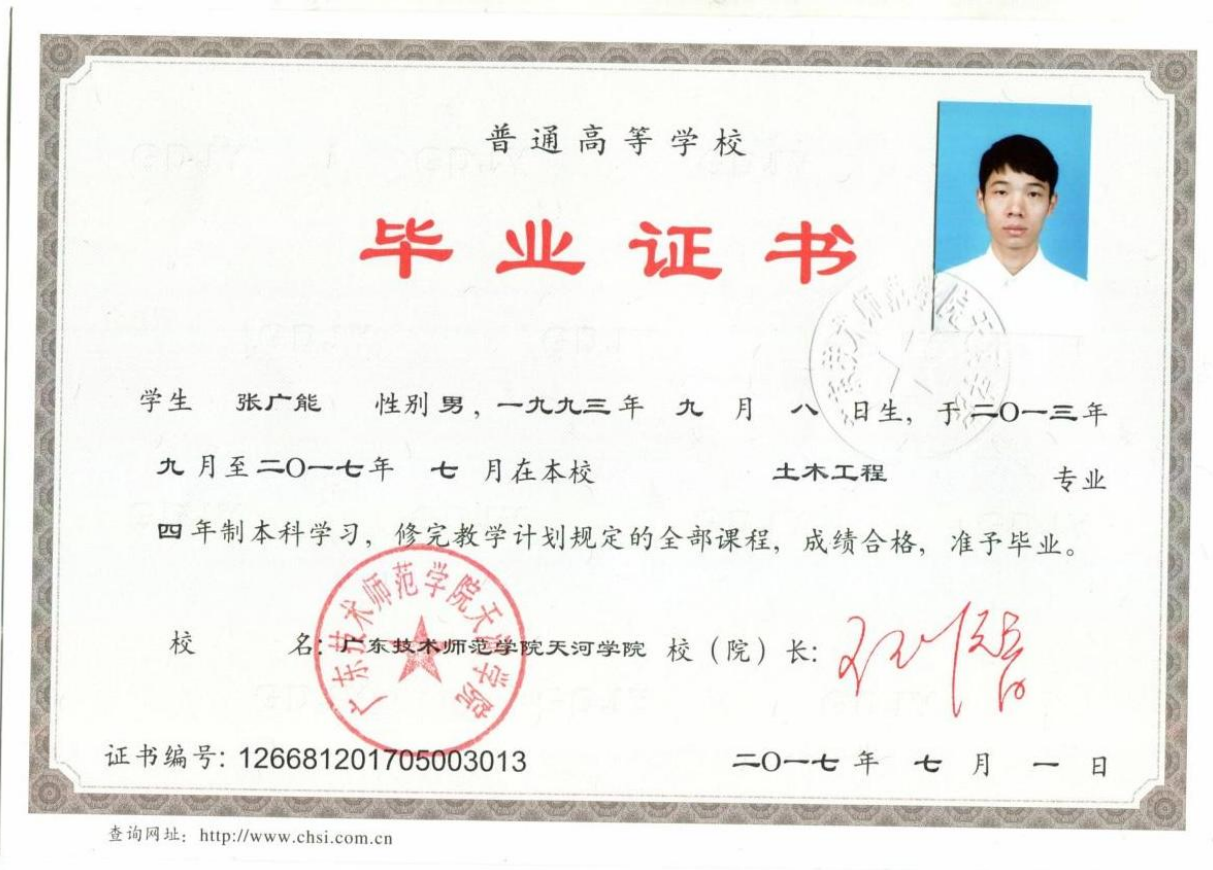 普通高等学校
毕业证书
学生 张广能 性别 男，一九九三年 九 月 八 日生，于二〇一三年
九月至二〇一七年 七 月在本校 土木工程 专业
四年制本科学习，修完教学计划规定的全部课程，成绩合格，准予毕业。
校 名：广东技术师范学院天河学院 校（院）长：
广东技术师范学院天河学院
证书编号：126681201705003013 二〇一七年 七 月 一 日
查询网址：http://www.chsi.com.cn